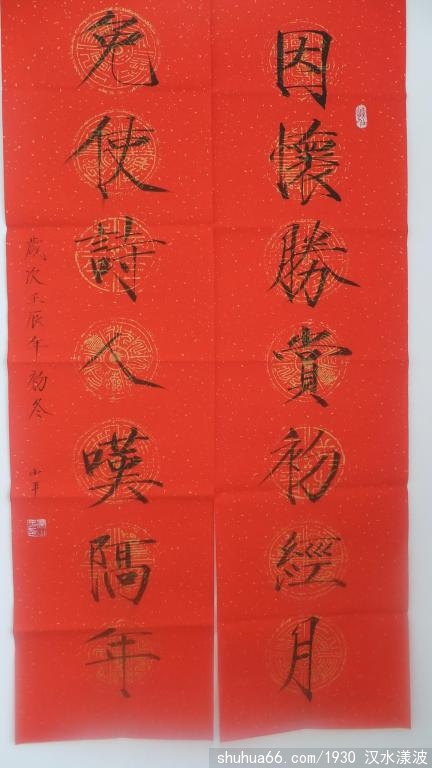 因懷勝賞初經月
免使詩人嘆隔年
歲次壬辰年初冬
小平
shuhua66.com/1930 汉水漾波